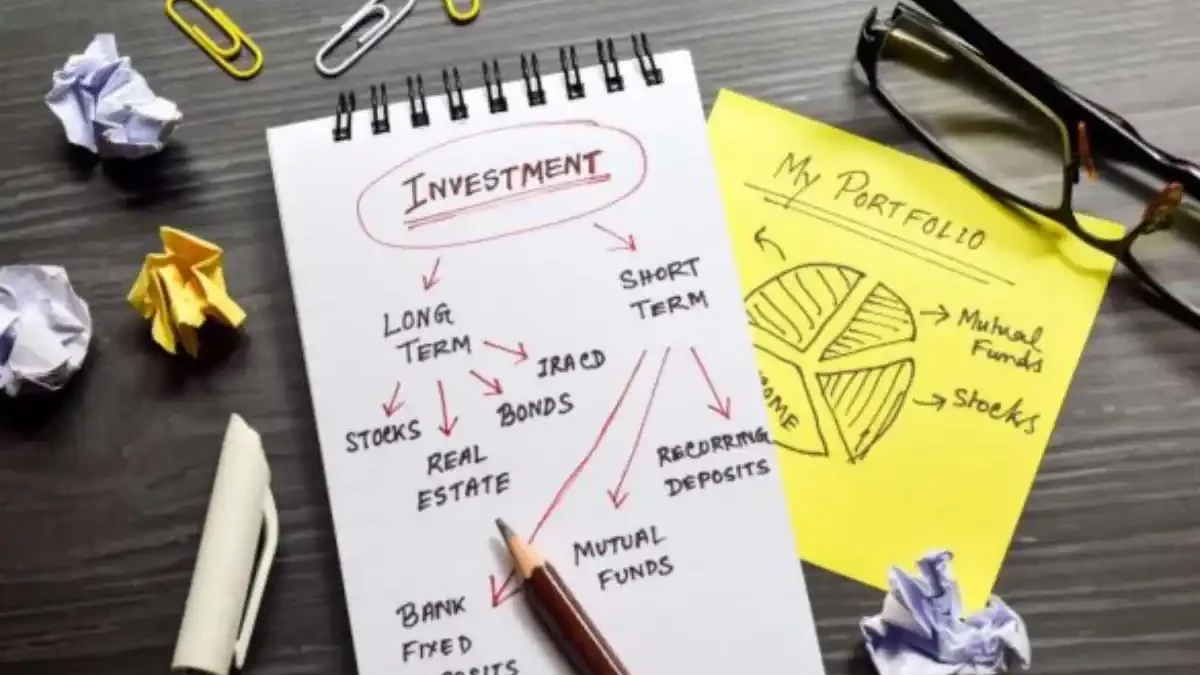 INVESTMENT
LONG
TERM
SHORT
TERM
STOCKS
REAL
ESTATE
BONDS
IRA CD
BANK
FIXED
MUTUAL
FUNDS
RECORRING
DEPOSITS
My PORTFOLIO
Mutual
Funds
Stocks